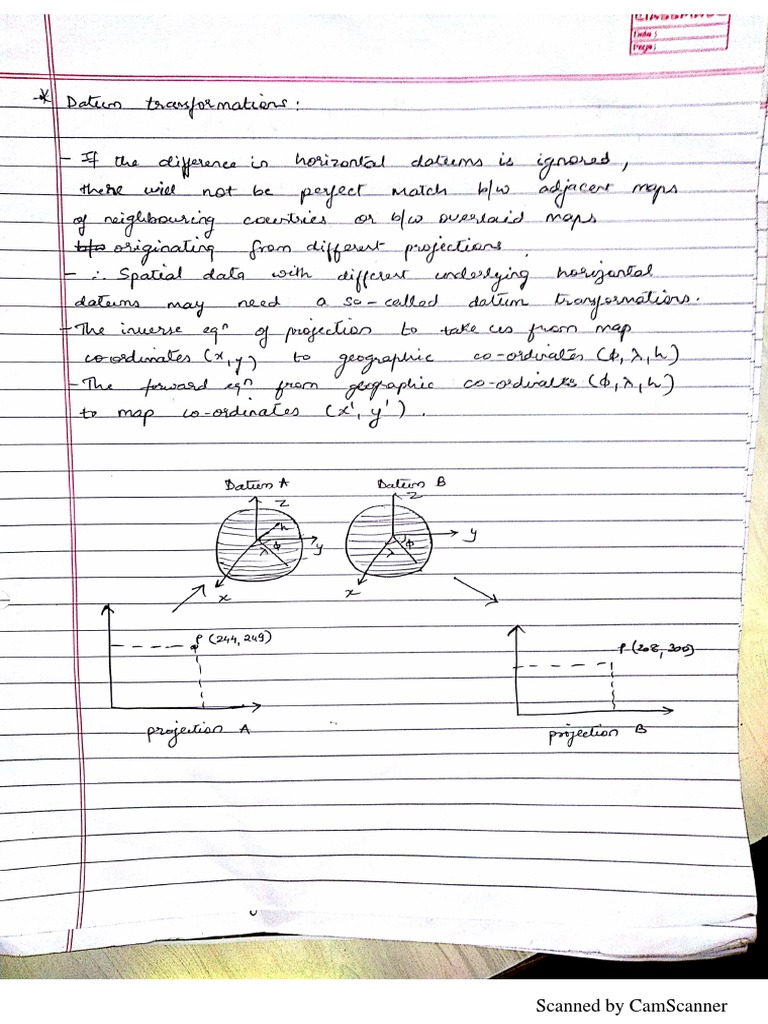 CLASSMATE
Date :
Page :
* Datum transformations :
- If the difference in horizontal datums is ignored,
there will not be perfect match b/w adjacent maps
of neighbouring countries or b/w overlaid maps
originating from different projections.
- ∴ Spatial data with different underlying horizontal
datums may need a so-called datum transformations.
- The inverse eqⁿ of projection to take us from map
co-ordinates (x,y) to geographic co-ordinates (ϕ, λ, h)
- The forward eqⁿ from geographic co-ordinates (ϕ, λ, h)
to map co-ordinates (x', y').
Datum A Datum B
z z
h
ϕ y ϕ y
λ λ
x x
P (244, 249)
P (208, 300)
projection A projection B
Scanned by CamScanner